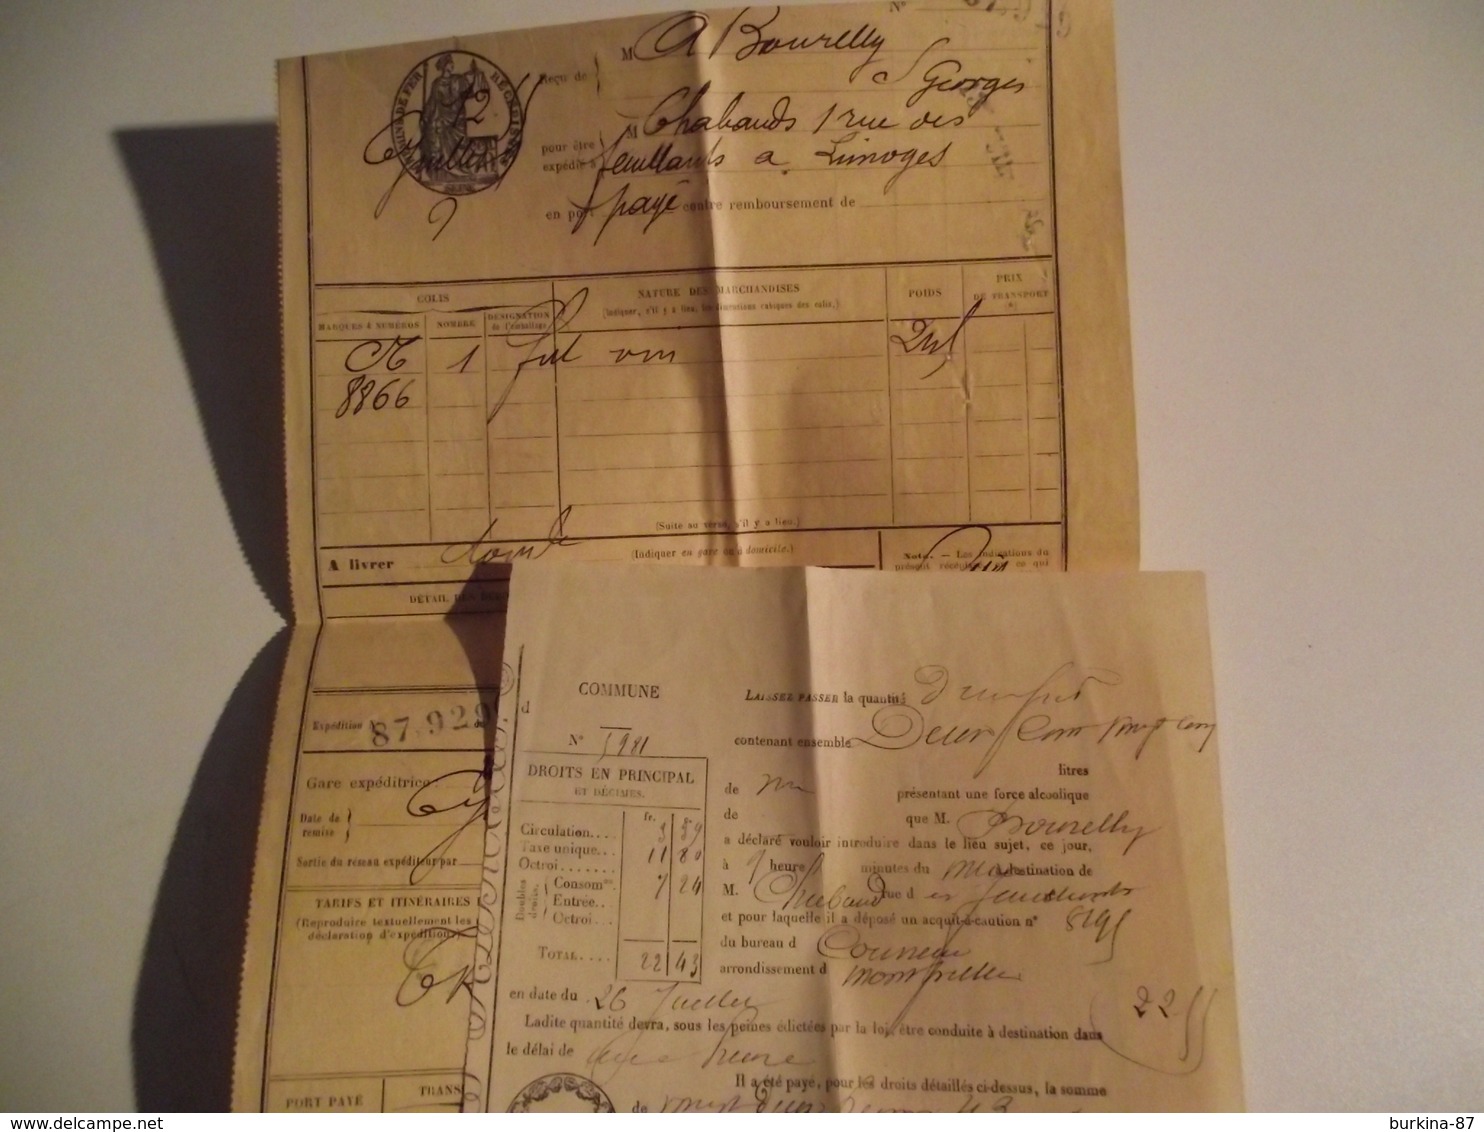 N°
M A Bourelly
Reçu de
S Georges
CHEMINS DE FER RÉCÉPISSÉ
M Chabauds 1 rue des
pour être
expédié à feuillants a Limoges
en port payé contre remboursement de
COLIS
NATURE DES MARCHANDISES
POIDS
PRIX
DE TRANSPORT
MARQUES & NUMÉROS
NOMBRE
DÉSIGNATION
de l'emballage
1 fut vin
8866
(Suite au verso, s'il y a lieu.)
A livrer domicile
(Indiquer en gare ou à domicile.)
Nota. — Les indications du
présent ce qui
DÉTAIL DES
Expédition N° 87.922
Gare expéditrice
Date de
remise
Sortie du réseau expéditeur par
TARIFS ET ITINÉRAIRES
(Reproduire textuellement les
déclaration d'expédition)
PORT PAYÉ
TRANS
COMMUNE
d
N° 5981
DROITS EN PRINCIPAL
ET DÉCIMES.
fr.
Circulation.... 3 39
Taxe unique... 11 80
Octroi.......
Doubles droits. Consom. 7 24
Entrée..
Octroi..
TOTAL.... 22 43
LAISSER PASSER la quantité d'un fut
contenant ensemble Deux cent vingt cinq
litres
de vin présentant une force alcoolique
de que M. Bourelly
a déclaré vouloir introduire dans le lieu sujet, ce jour,
à 9 heures minutes du matin à destination de
M. Chabaud rue des feuillants
et pour laquelle il a déposé un acquit-à-caution n° 8195
du bureau d
arrondissement d Montpellier
en date du 26 Juillet
22
Ladite quantité devra, sous les peines édictées par la loi, être conduite à destination dans
le délai de une heure
Il a été payé, pour les droits détaillés ci-dessus, la somme
de vingt deux francs 43
burkina-87